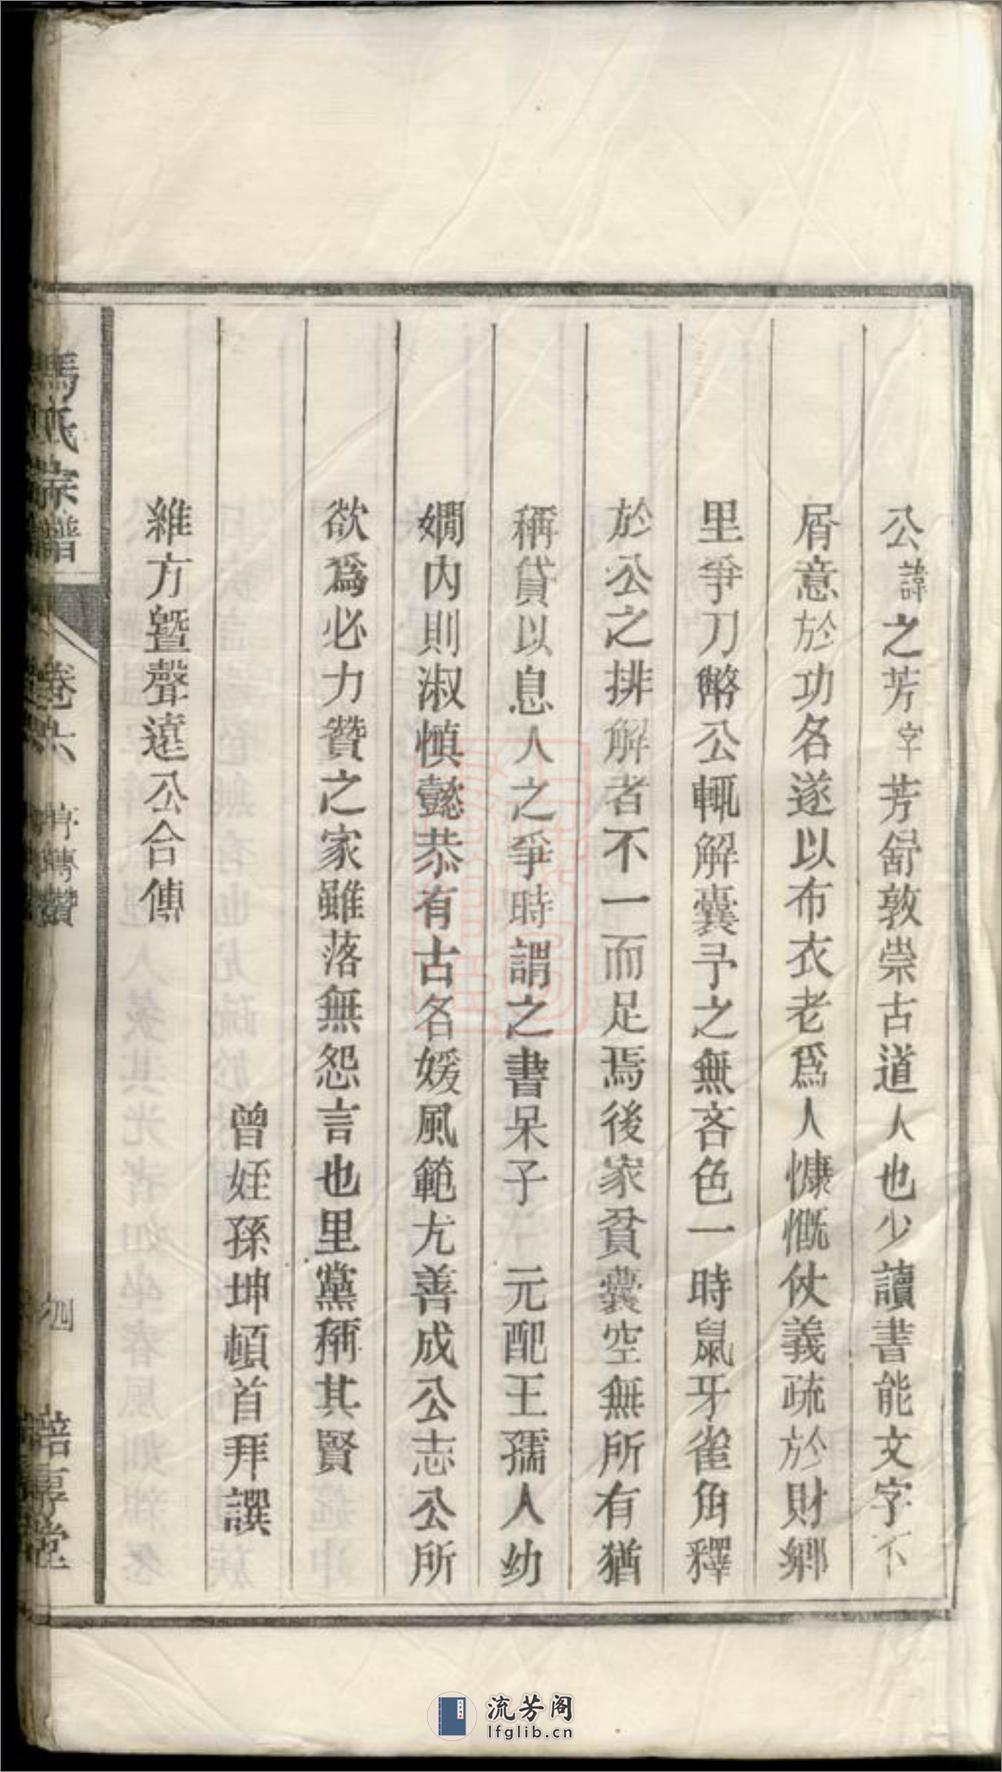 公諱之芳字芳舒敦崇古道人也少讀書能文字不
屑意於功各遂以布衣老爲人慷慨仗義疏於財鄉
里爭刀幣公輒解囊予之無吝色一時鼠牙雀角釋
於公之排解者不一而足焉後家貧囊空無所有猶
稱貸以息人之爭時謂之書呆子 元配王孺人幼
嫺內則淑慎懿恭有古名媛風範尤善成公志公所
欲爲必力贊之家雖落無怨言也里黨稱其賢
曾姪孫坤頓首拜譔
維方暨聲遠公合傳
馬氏宗譜 卷六 序傳贊 四
流芳阁
lfglib.cn